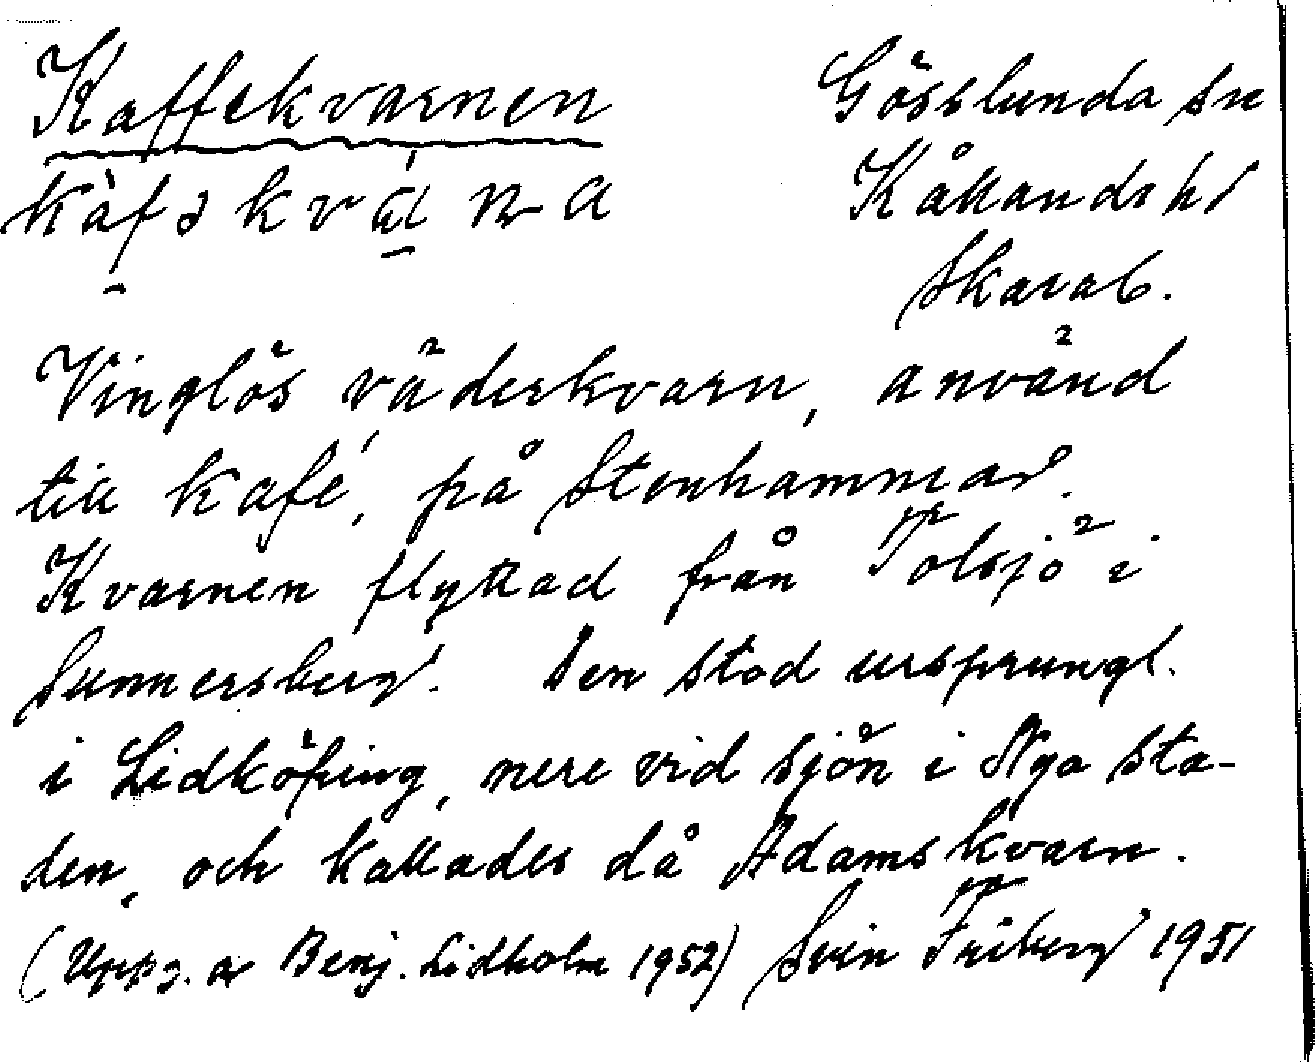 Kaffekvarnen
Gösslunda sn
Kållands hd
Skarab.
Vinglös väderkvarn, använd
till kafé, på Stenhammar.
Kvarnen flyttad från Tolsjö i
Sunnersberg. Den stod ursprungl.
i Lidköping, nere vid sjön i Nya sta-
den, och kallades då Adamskvarn.
(Uppg. av Benj. Lidholm 1952) Svein Friberg 1951